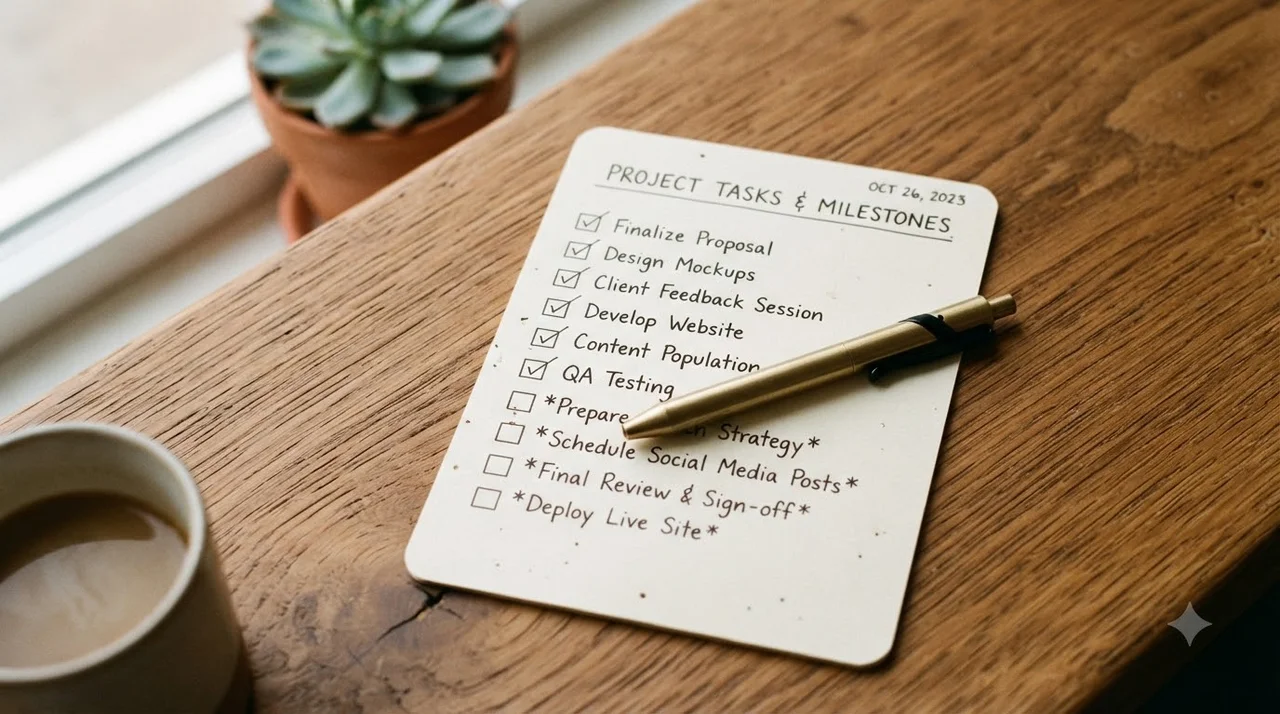 PROJECT TASKS & MILESTONES
OCT 26, 2023
Finalize Proposal
Design Mockups
Client Feedback Session
Develop Website
Content Population
QA Testing
*Prepare Strategy*
*Schedule Social Media Posts*
*Final Review & Sign-off*
*Deploy Live Site*